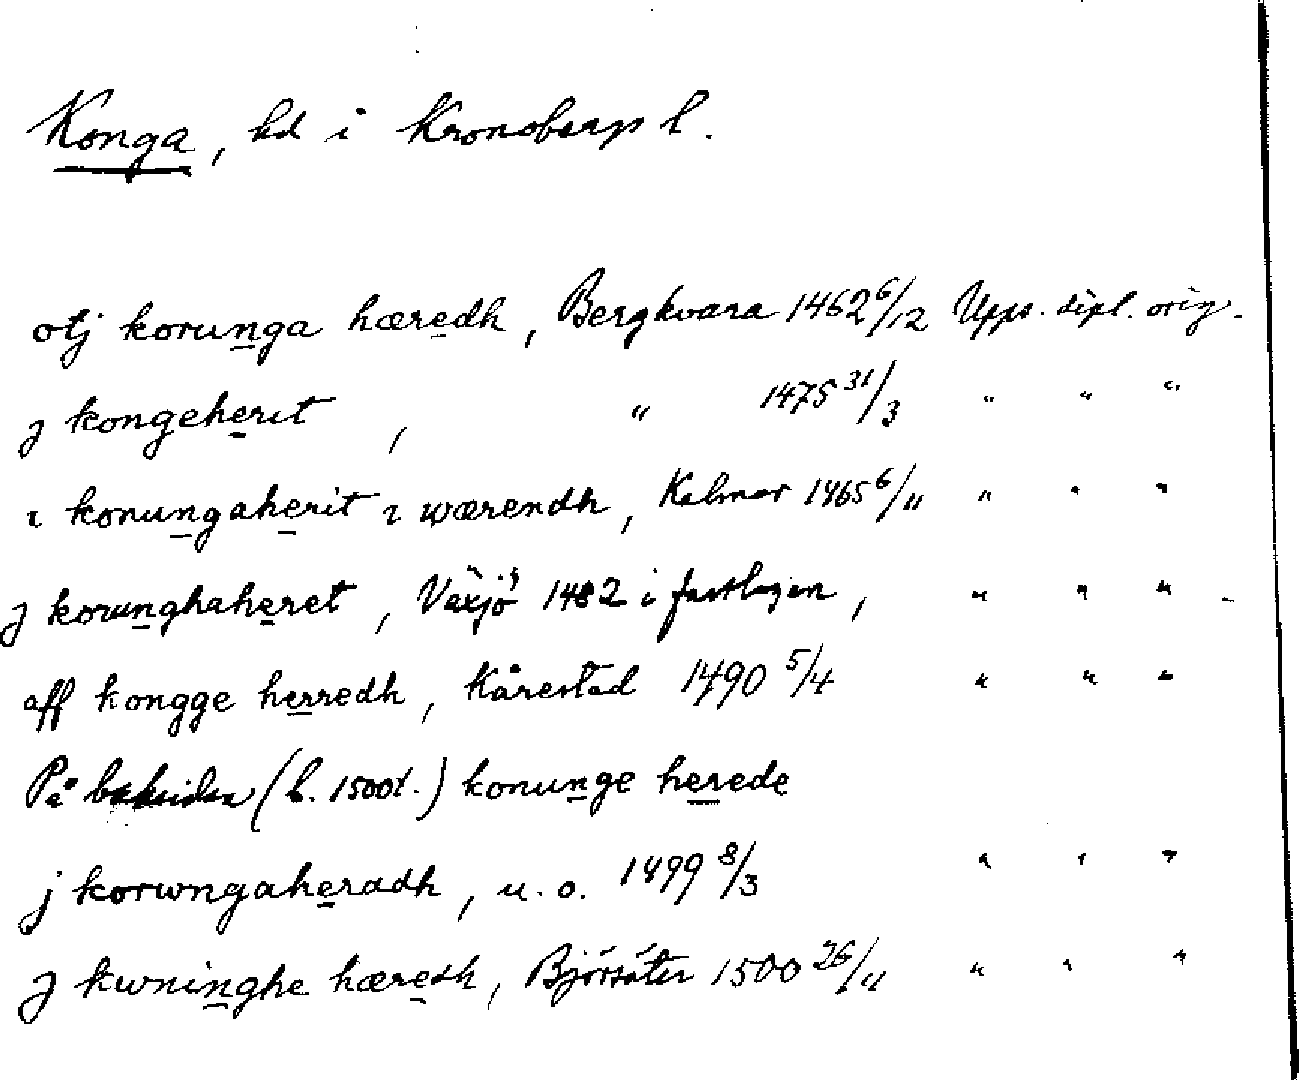 Konga, hd i Kronobergs l.
otj konunga hæredh, Bergkvara 1462 6/12 Upps. dipl. orig.
j kongeherit, " 1475 31/3 " " "
i konungaherit i wærendh, Kalmar 1465 6/11 " " "
j konunghaheret, Växjö 1482 i fastlagen, " " "
aff kongge herredh, Kårestad 1490 5/4 " " "
På baksidan (b. 1500t.) konunge herede
j konwngaheradh, u. o. 1499 8/3 " " "
J kwninghe hæredh, Björsäter 1500 26/11 " " "